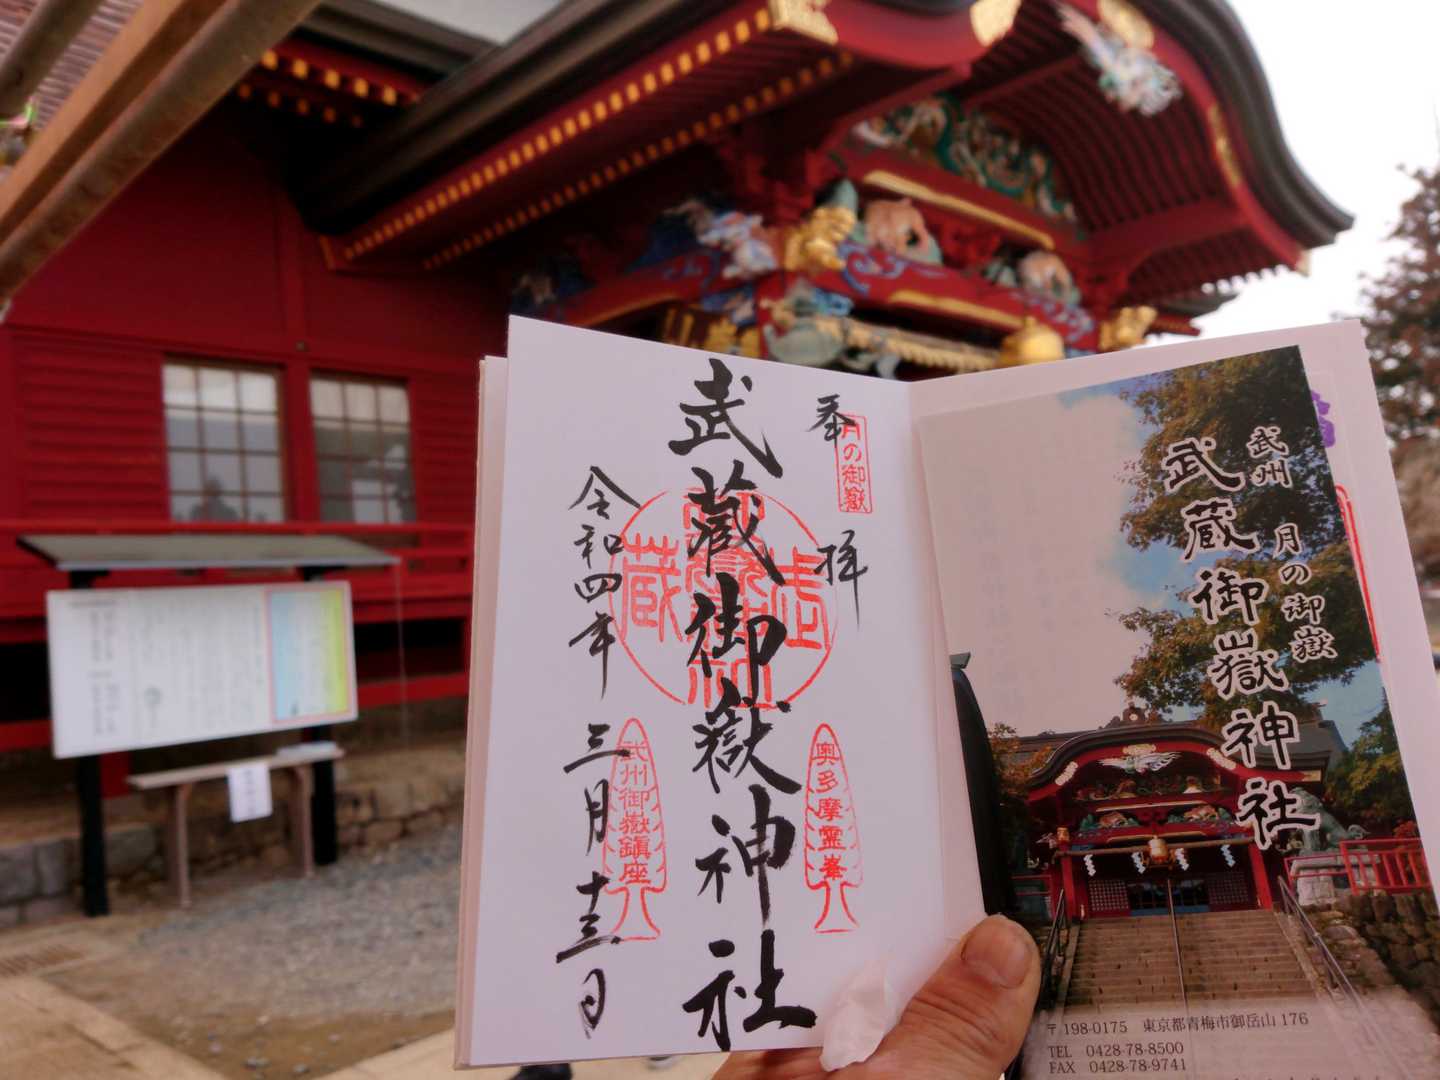 奉拝
月の御嶽
武蔵御嶽神社
武蔵
奥多摩霊峯
武州御嶽鎮座
令和四年三月十三日
武州 月の御嶽
武蔵御嶽神社
〒198-0175 東京都青梅市御岳山176
TEL 0428-78-8500
FAX 0428-78-9741